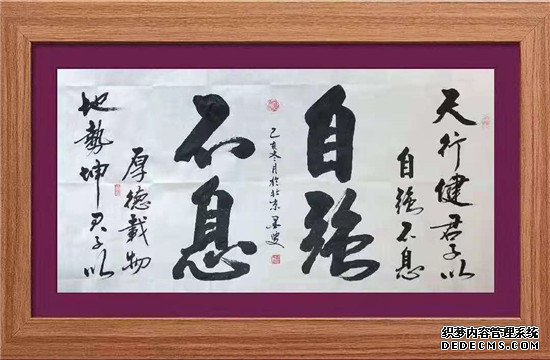 天行健君子以
自强不息
自强
己亥冬月於北京墨叟
不息
地勢坤君子以
厚德載物
织梦内容管理系统
DEDECMS.COM